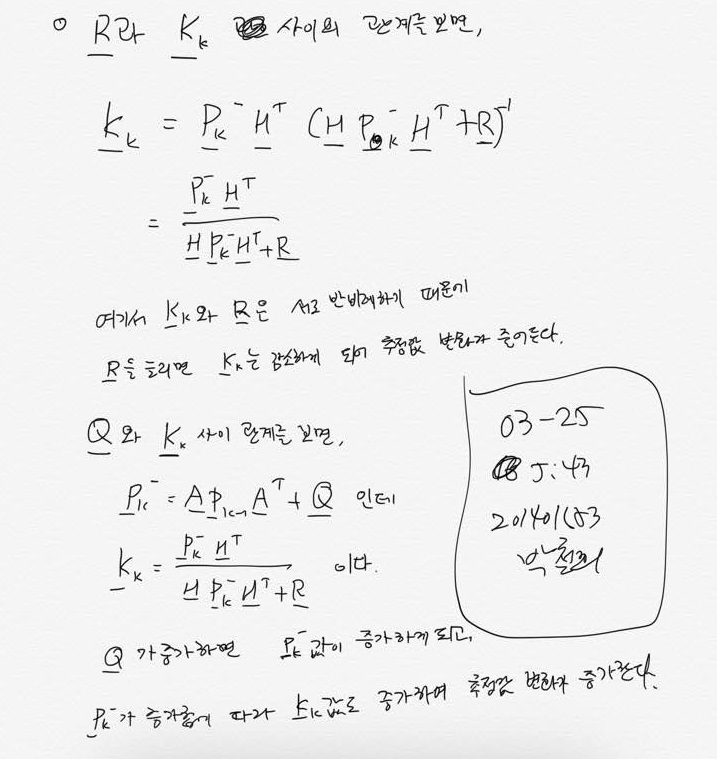 ○ R라 K_k 사이의 관계를 보면,
K_k = P_k^- H^T (H P_k^- H^T + R)^-1
= P_k^- H^T / H P_k^- H^T + R
여기서 K_k와 R은 서로 반비례하기 때문에
R을 늘리면 K_k는 감소하게 되어 추정값 변화가 줄어든다.
Q와 K_k 사이 관계를 보면,
P_k^- = A P_k-1 A^T + Q 인데
K_k = P_k^- H^T / H P_k^- H^T + R 이다.
Q가 증가하면 P_k^-값이 증가하게 되고,
P_k^-가 증가함에 따라 K_k값도 증가하여 추정값 변화가 증가한다.
03-25
5:43